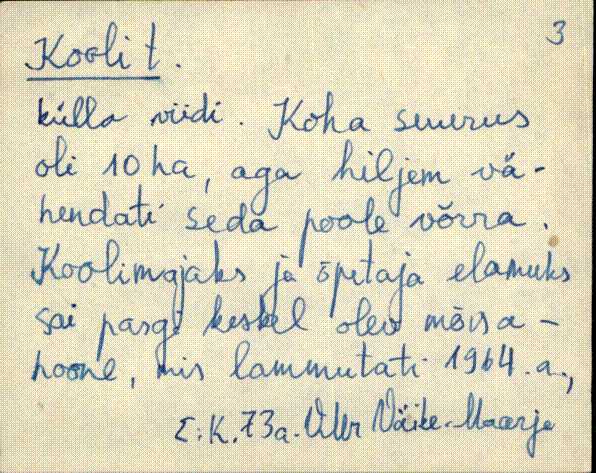 3
Kooli t.
külla viidi. Koha suurus
oli 10 ha, aga hiljem vä-
hendati seda poole võrra.
Koolimajaks ja õpetaja elamuks
sai pargi keskel olev mõisa-
hoone, mis lammutati 1964. a.,
E. K. 73a. VMr Väike-Maarja